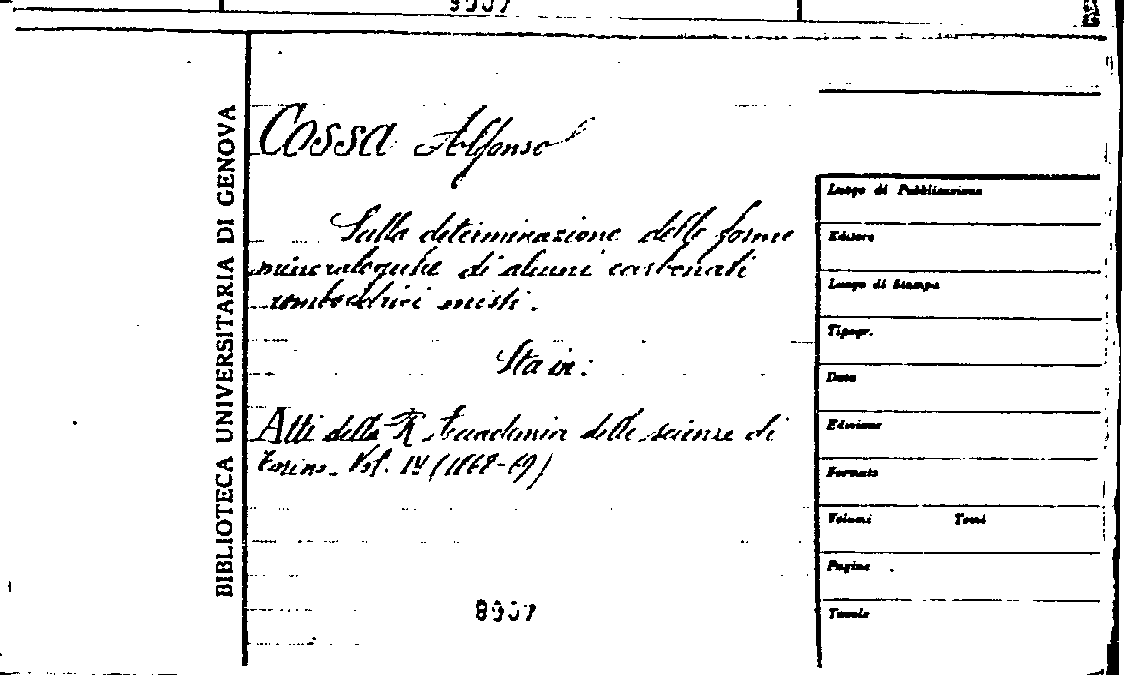 BIBLIOTECA UNIVERSITARIA DI GENOVA
Cossa Alfonso
Sulla determinazione delle forme
mineralogiche di alcuni carbonati
romboedrici misti.
Sta in:
Atti della R. Accademia delle scienze di
Torino. Vol. IV (1868-69)
8907
Luogo di Pubblicazione
Editore
Luogo di Stampa
Tipogr.
Data
Edizione
Formato
Volumi Tomi
Pagine
Tavole